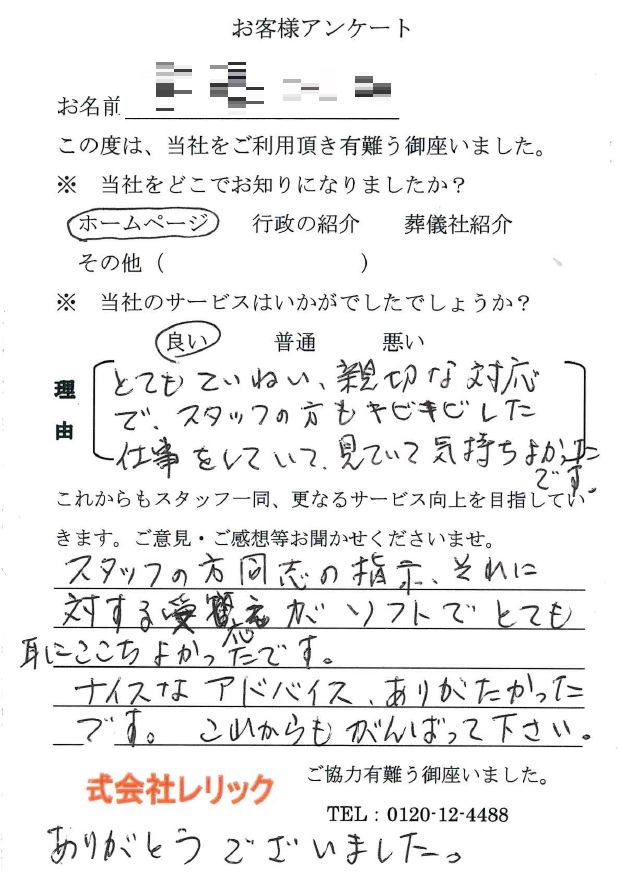 お客様アンケート
お名前
この度は、当社をご利用頂き有難う御座いました。
※ 当社をどこでお知りになりましたか？
ホームページ 行政の紹介 葬儀社紹介
その他（ ）
※ 当社のサービスはいかがでしたでしょうか？
良い 普通 悪い
理由
とてもていねい、親切な対応
で、スタッフの方もキビキビした
仕事をしていて、見ていて気持ちよかった
です。
これからもスタッフ一同、更なるサービス向上を目指してい
きます。ご意見・ご感想等お聞かせくださいませ。
スタッフの方同志の指示、それに
対する 応 がソフトでとても
耳にここちよかったです。
ナイスなアドバイス、ありがたかった
です。これからもがんばって下さい。
式会社レリック
ご協力有難う御座いました。
TEL：0120-12-4488
ありがとうございました。